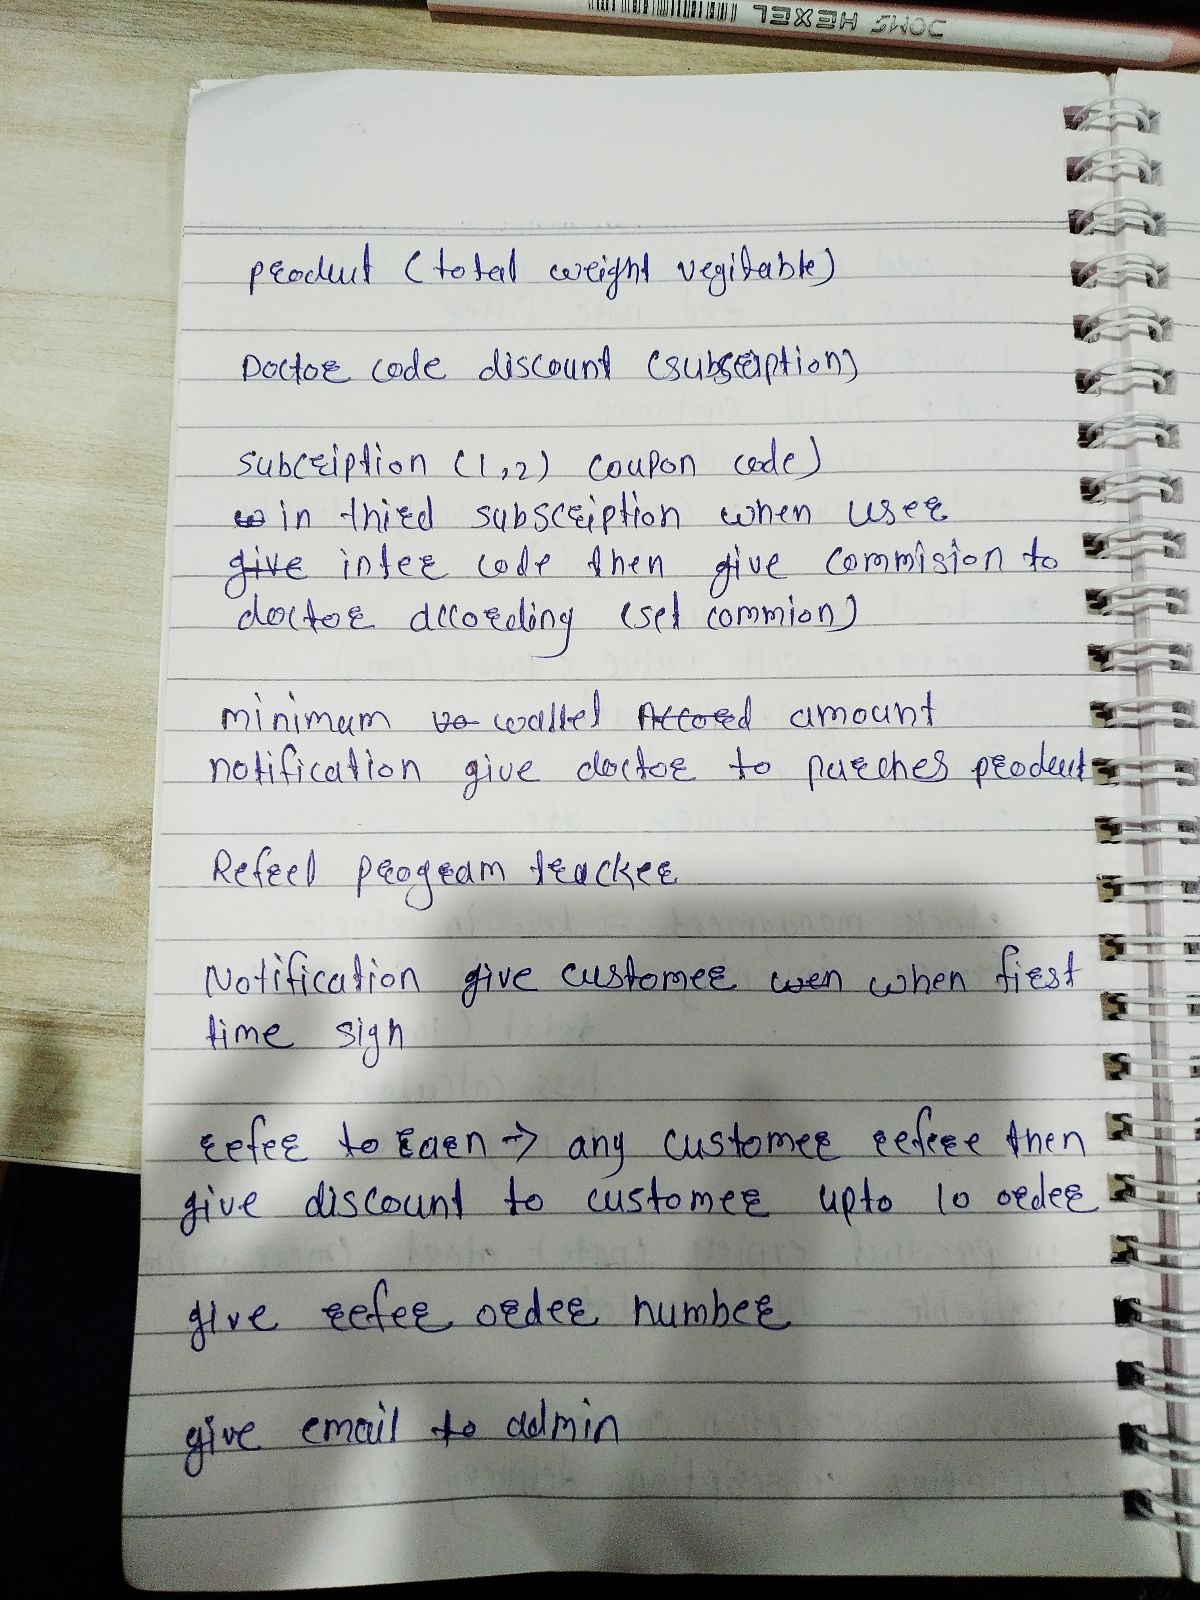 DOMS HEXEL
product (total weight vegitable)
Doctor code discount (subscription)
subcription (1,2) coupon code)
in third subscription when user
give inter code then give commision to
doctor according (set commion)
minimum wallet Accord amount
notification give doctor to purches product
Referl program tracker
Notification give customer wen when first
time sign
refer to earn → any customer refree then
give discount to customer upto 10 order
give refer order number
give email to admin